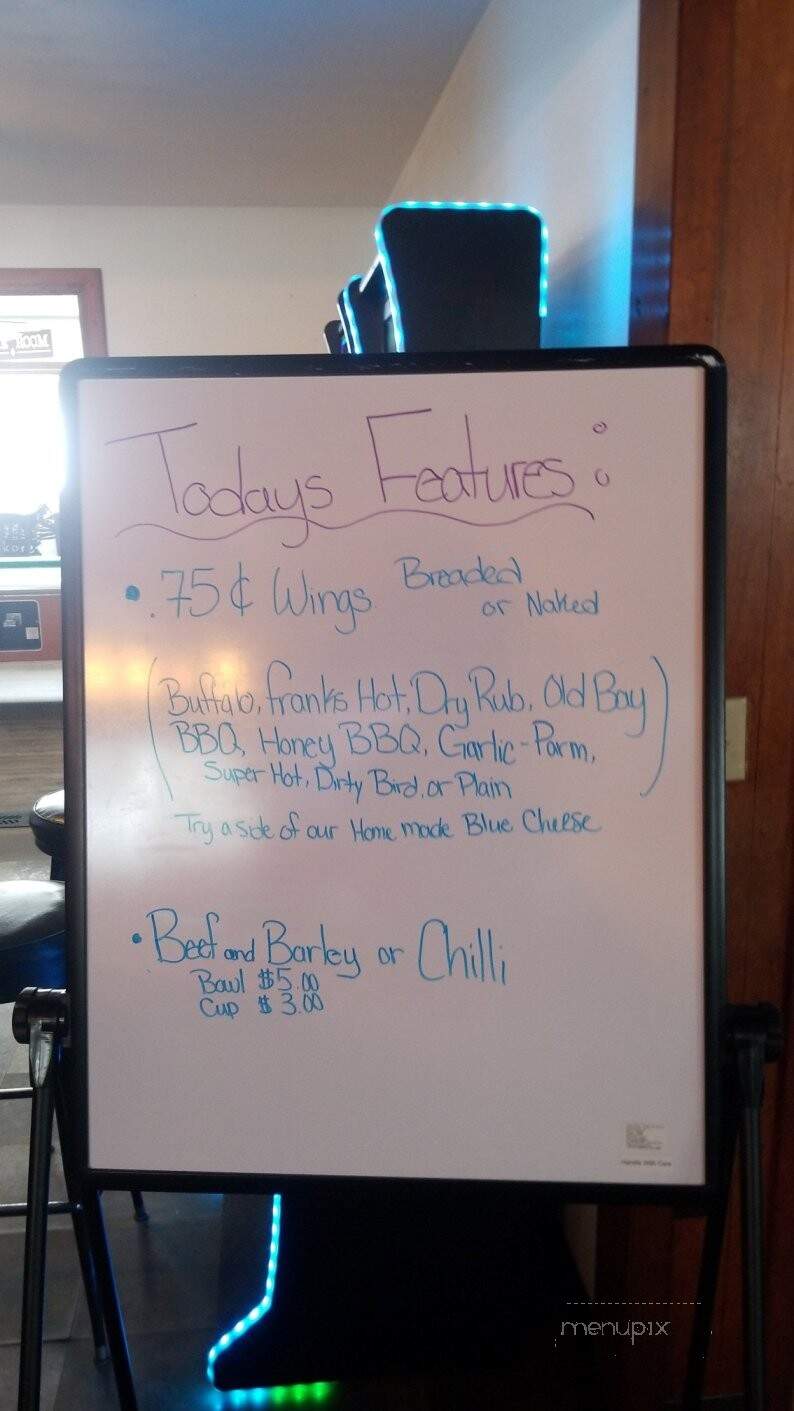 ROOM
Todays Features:
• .75¢ Wings Breaded
or Naked
(Buffalo, Franks Hot, Dry Rub, Old Bay
BBQ, Honey BBQ, Garlic-Parm,
Super Hot, Dirty Bird, or Plain)
Try a side of our Home made Blue Cheese
• Beef and Barley or Chilli
Bowl $5.00
Cup $3.00
Handle With Care
menupix